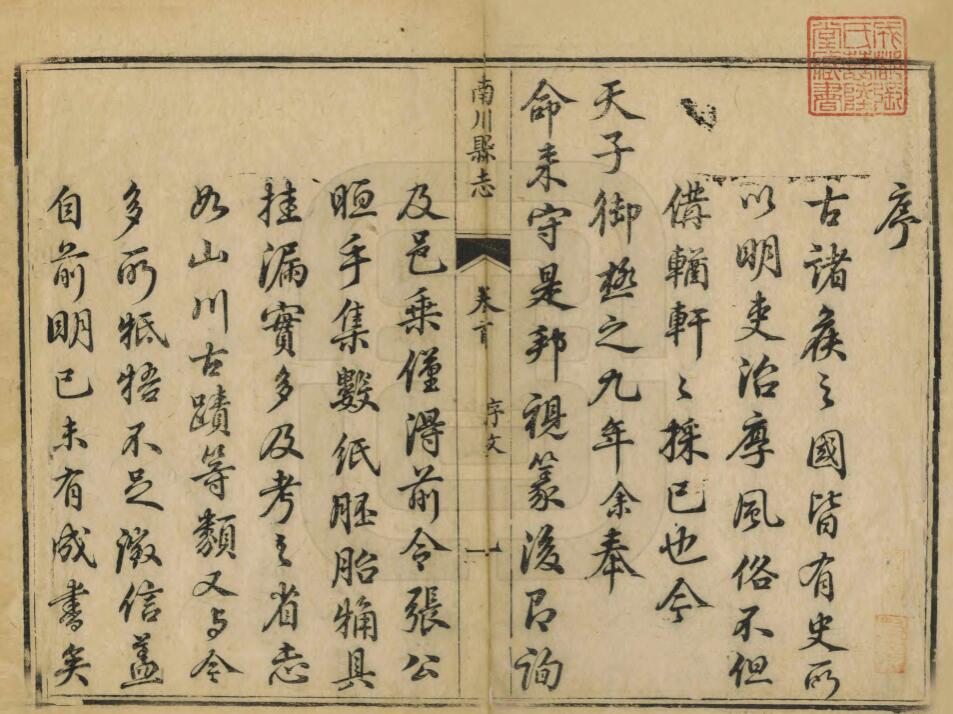 序
古諸矦之國皆有史所
以明吏治厚風俗不但
備輶軒之採已也今
天子御極之九年余奉
命來守是邦視篆後即詢
南川縣志
卷首
序文
一
及邑乘僅得前令張公
手集數紙胚胎觕具
挂漏實多及考之省志
如山川古蹟等類又与今
多所牴牾不足徵信蓋
自前明已未有成書矣